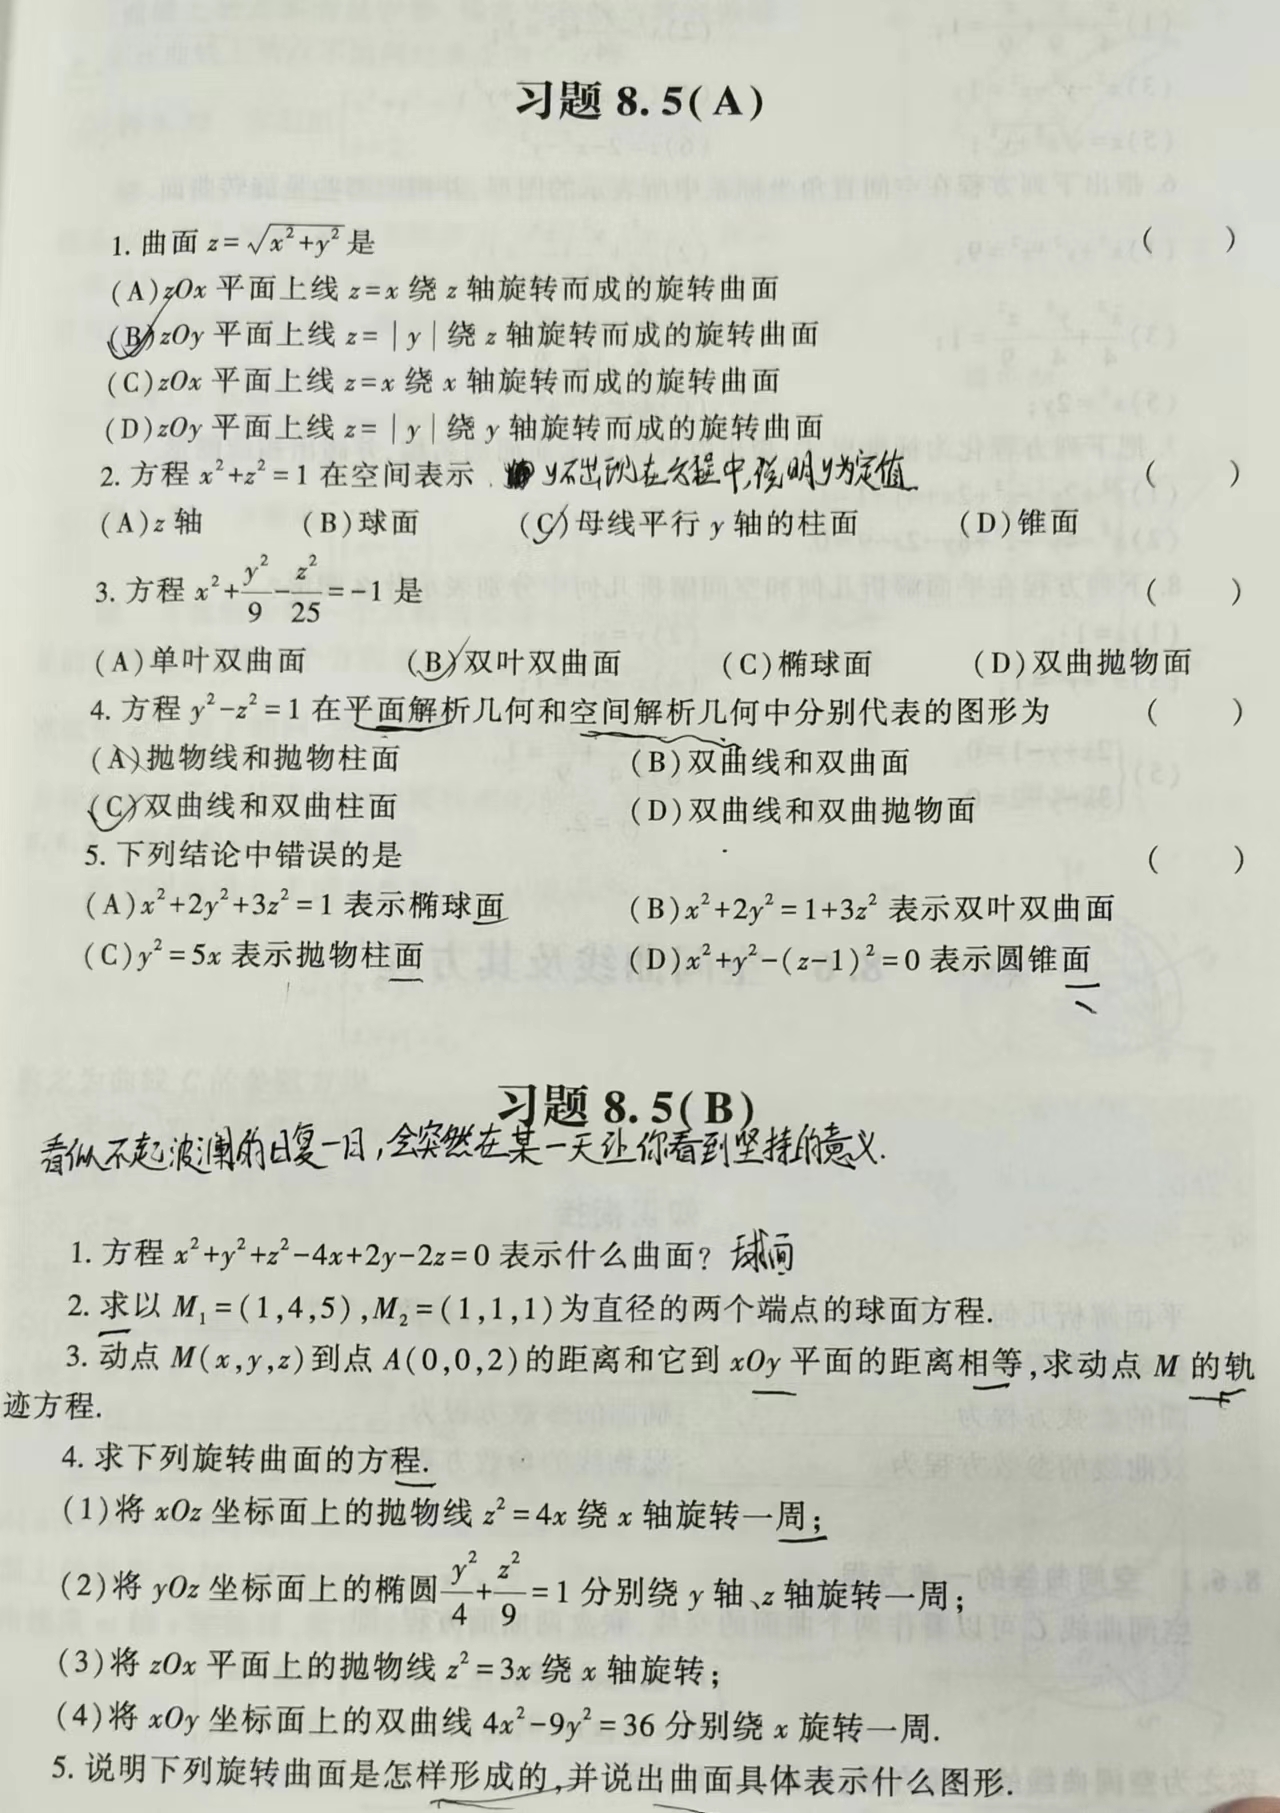 习题 8.5(A)
1. 曲面 z=√(x²+y²) 是 ( )
(A) zOx 平面上线 z=x 绕 z 轴旋转而成的旋转曲面
(B) zOy 平面上线 z=|y| 绕 z 轴旋转而成的旋转曲面
(C) zOx 平面上线 z=x 绕 x 轴旋转而成的旋转曲面
(D) zOy 平面上线 z=|y| 绕 y 轴旋转而成的旋转曲面
2. 方程 x²+z²=1 在空间表示 y不出现在方程中,说明y为定值. ( )
(A) z 轴 (B) 球面 (C) 母线平行 y 轴的柱面 (D) 锥面
3. 方程 x²+y²/9-z²/25=-1 是 ( )
(A) 单叶双曲面 (B) 双叶双曲面 (C) 椭球面 (D) 双曲抛物面
4. 方程 y²-z²=1 在平面解析几何和空间解析几何中分别代表的图形为 ( )
(A) 抛物线和抛物柱面 (B) 双曲线和双曲面
(C) 双曲线和双曲柱面 (D) 双曲线和双曲抛物面
5. 下列结论中错误的是 ( )
(A) x²+2y²+3z²=1 表示椭球面 (B) x²+2y²=1+3z² 表示双叶双曲面
(C) y²=5x 表示抛物柱面 (D) x²+y²-(z-1)²=0 表示圆锥面
习题 8.5(B)
看似不起波澜的日复一日,会突然在某一天让你看到坚持的意义.
1. 方程 x²+y²+z²-4x+2y-2z=0 表示什么曲面? 球面
2. 求以 M₁=(1,4,5),M₂=(1,1,1)为直径的两个端点的球面方程.
3. 动点 M(x,y,z)到点 A(0,0,2)的距离和它到 xOy 平面的距离相等,求动点 M 的轨
迹方程.
4. 求下列旋转曲面的方程.
(1) 将 xOz 坐标面上的抛物线 z²=4x 绕 x 轴旋转一周;
(2) 将 yOz 坐标面上的椭圆 y²/4+z²/9=1 分别绕 y 轴、z 轴旋转一周;
(3) 将 zOx 平面上的抛物线 z²=3x 绕 x 轴旋转;
(4) 将 xOy 坐标面上的双曲线 4x²-9y²=36 分别绕 x 旋转一周.
5. 说明下列旋转曲面是怎样形成的,并说出曲面具体表示什么图形.